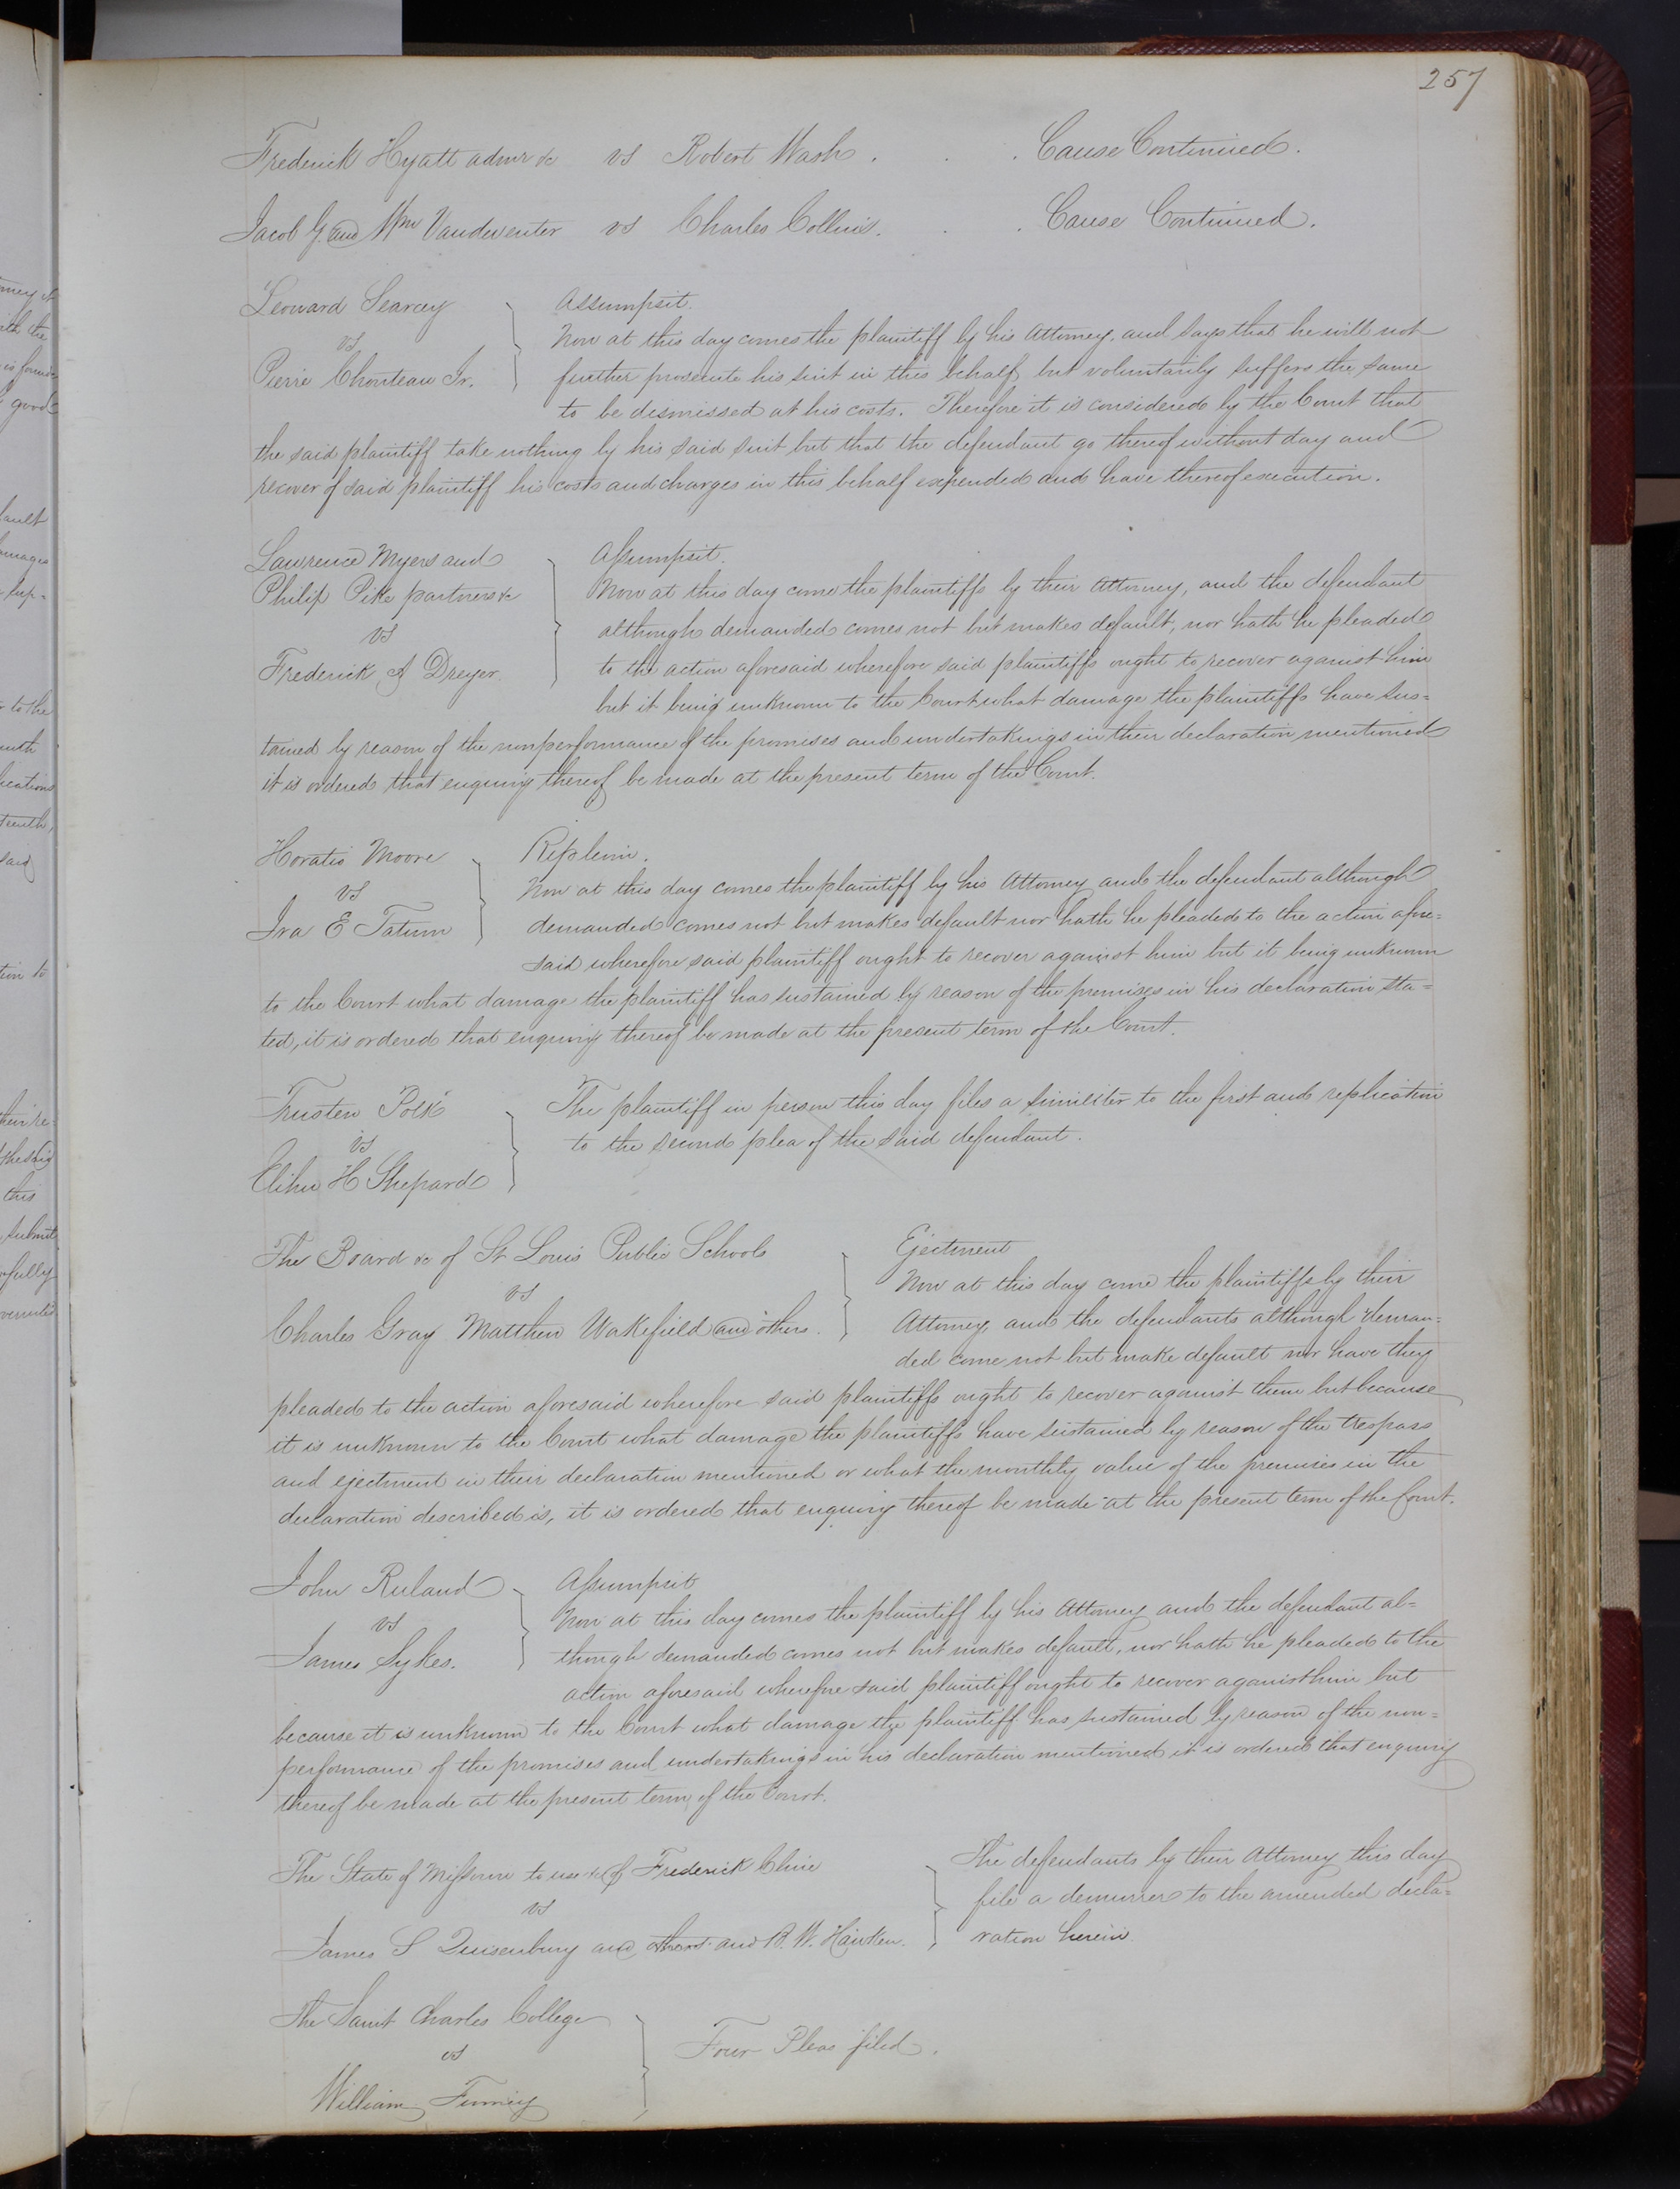 257
Frederick Hyatt admr &c vs Robert Wash . . . Cause Continued.
Jacob G. and Wm Vandeventer vs Charles Collins. . . Cause Continued.
Leonard Searcy
vs
Pierre Chouteau Jr.
Assumpsit.
Now at this day comes the plaintiff by his Attorney, and says that he will not
further prosecute his suit in this behalf but voluntarily suffers the same
to be dismissed at his costs. Therefore it is considered by the Court that
the said plaintiff take nothing by his said suit but that the defendant go thereof without day and
recover of said plaintiff his costs and charges in this behalf expended and have thereof execution.
Lawrence Myers and
Philip Pike partners &c
vs
Frederick A Dreyer
Assumpsit.
Now at this day come the plaintiffs by their Attorney, and the defendant
although demanded comes not but makes default, nor hath he pleaded
to the action aforesaid wherefore said plaintiffs ought to recover against him
but it being unknown to the Court what damage the plaintiffs have sus=
tained by reason of the nonperformance of the promises and undertakings in their declaration mentioned
it is ordered that enquiry thereof be made at the present term of the Court.
Horatio Moore
vs
Ira E Tatum
Replevin.
Now at this day comes the plaintiff by his Attorney and the defendant although
demanded comes not but makes default nor hath he pleaded to the action afore=
said wherefore said plaintiff ought to recover against him but it being unknown
to the Court what damage the plaintiff has sustained by reason of the premises in his declaration sta=
ted, it is ordered that enquiry thereof be made at the present term of the Court.
Trusten Polk
vs
Elihu H Shepard
The plaintiff in person this day files a similiter to the first and replication
to the second plea of the said defendant.
The Board &c of St Louis Public Schools
vs
Charles Gray Matthew Wakefield and others.
Ejectment
Now at this day come the plaintiffs by their
Attorney, and the defendants although deman=
ded come not but make default nor have they
pleaded to the action aforesaid wherefore said plaintiffs ought to recover against them but because
it is unknown to the Court what damage the plaintiffs have sustained by reason of the trespass
and ejectment in their declaration mentioned or what the monthly value of the premises in the
declaration described is, it is ordered that enquiry thereof be made at the present term of the Court.
John Ruland
vs
James Sykes.
Assumpsit
Now at this day comes the plaintiff by his Attorney and the defendant al=
though demanded comes not but makes default, nor hath he pleaded to the
action aforesaid wherefore said plaintiff ought to recover against him but
because it is unknown to the Court what damage the plaintiff has sustained by reason of the non=
performance of the promises and undertakings in his declaration mentioned it is ordered that enquiry
thereof be made at the present term of the Court.
The State of Missouri to use &c of Frederick Cline
vs
James S Quisenbury and others and R. W. Hawken.
The defendants by their Attorney this day
file a demurrer to the amended decla=
ration herein.
The Saint Charles College
vs
William Finney
Four Pleas filed.